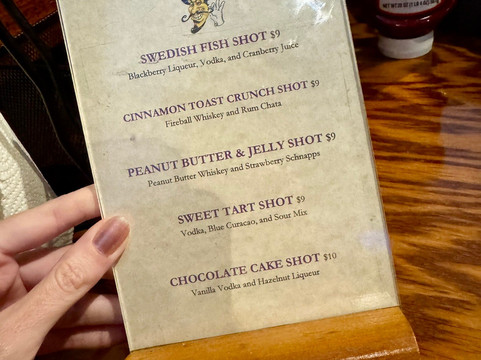 SWEDISH FISH SHOT $9
Blackberry Liqueur, Vodka, and Cranberry Juice
CINNAMON TOAST CRUNCH SHOT $9
Fireball Whiskey and Rum Chata
PEANUT BUTTER & JELLY SHOT $9
Peanut Butter Whiskey and Strawberry Schnapps
SWEET TART SHOT $9
Vodka, Blue Curacao, and Sour Mix
CHOCOLATE CAKE SHOT $10
Vanilla Vodka and Hazelnut Liqueur